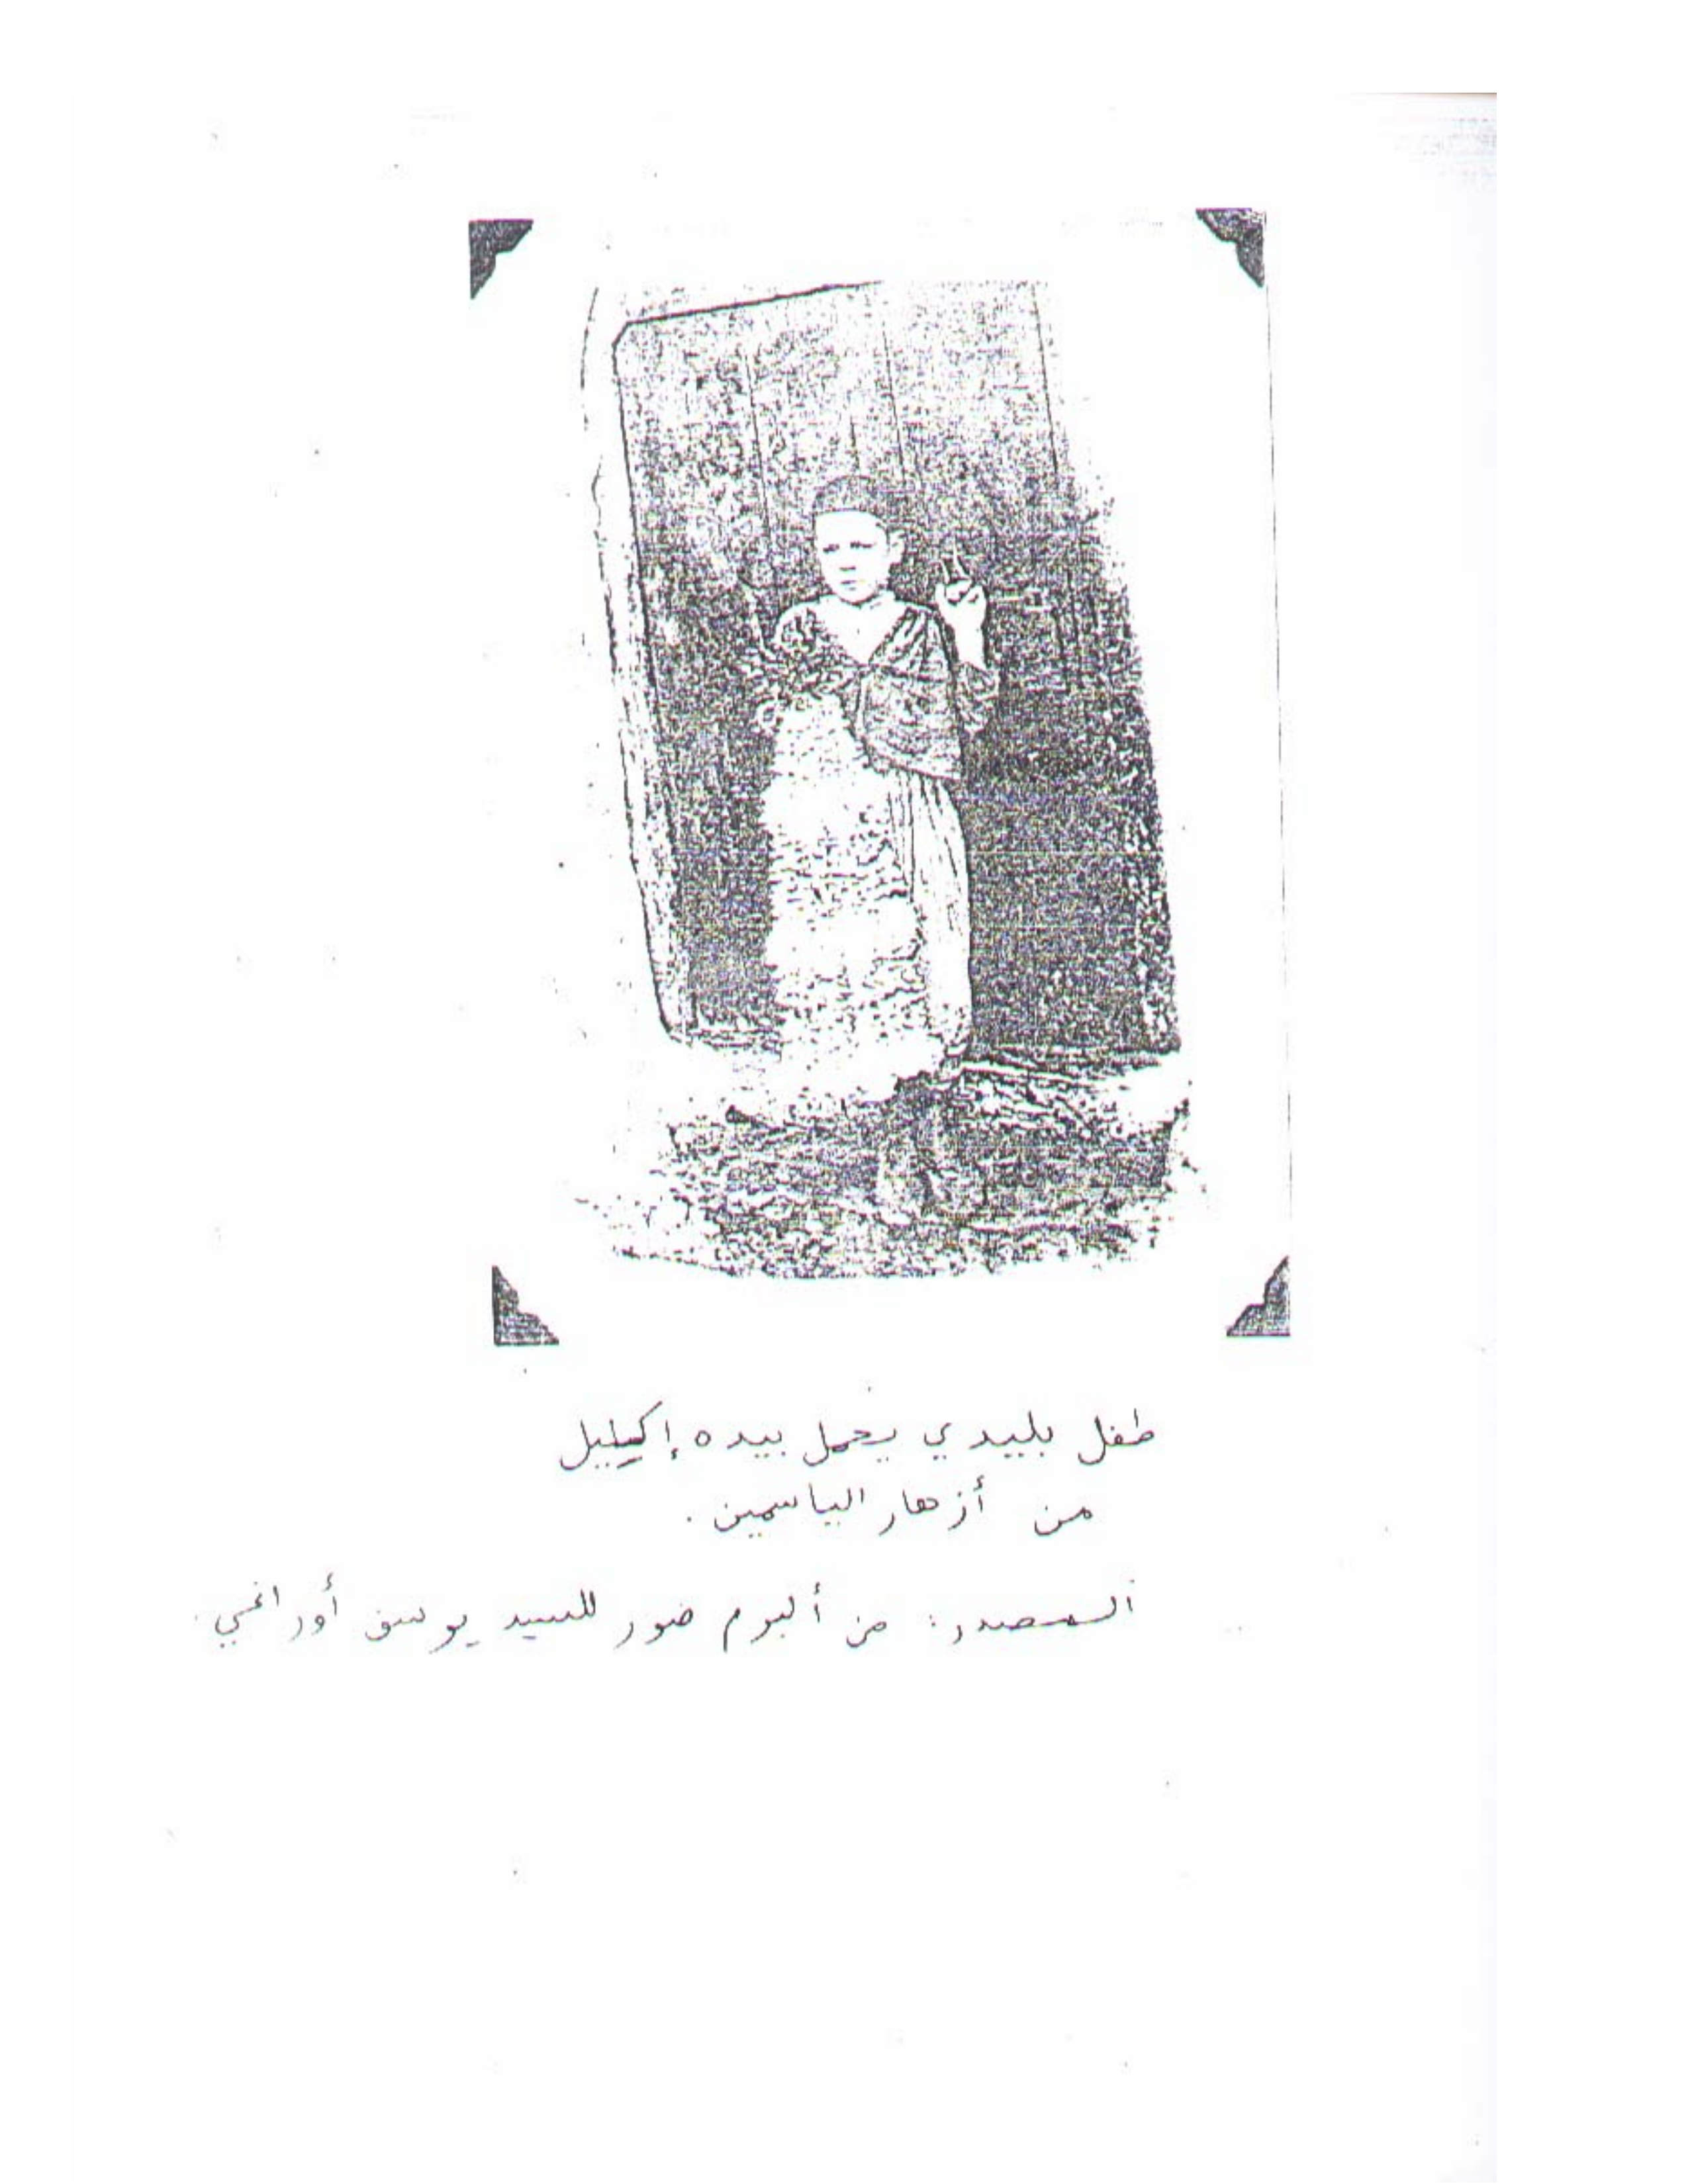 طفل بليدي يحمل بيده إكليل
من أزهار الياسمين.
المصدر: من ألبوم صور للسيد يوسف